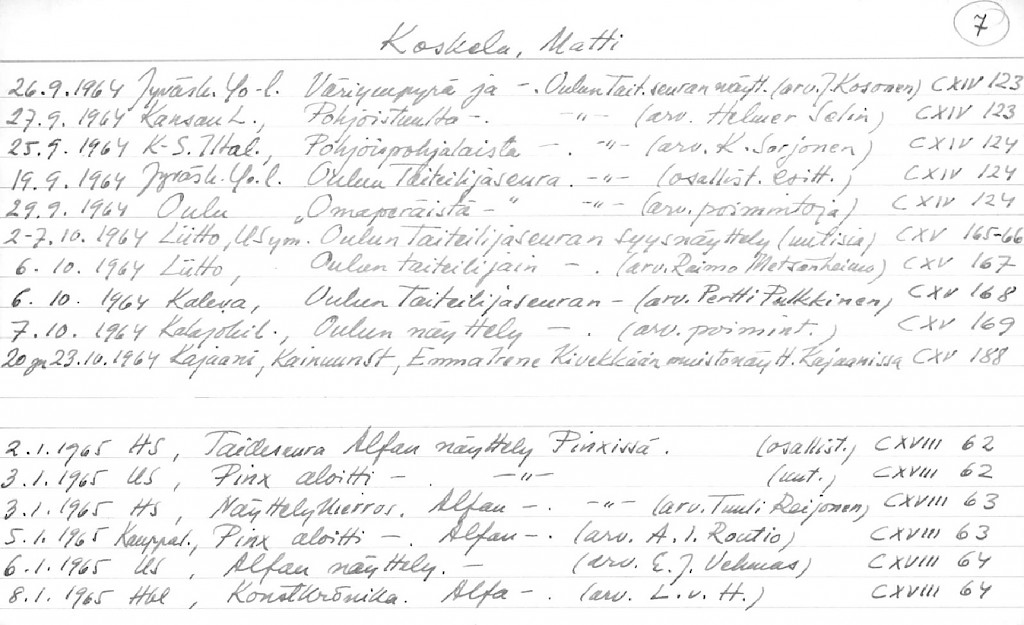 7
Koskela, Matti
26.9.1964 Jyväsk. Yo-l. Väriympyrä ja -. Oulun Tait.seuran näytt. (arv. J. Kosonen) CXIV 123
27.9.1964 Kansan L., Pohjoistuulta -. -"- (arv. Helmer Selin) CXIV 123
25.9.1964 K-S. Iltal., Pohjoispohjalaista -. -"- (arv. K. Sorjonen) CXIV 124
19.9.1964 Jyväsk. Yo.l. Oulun Taiteilijaseura. -"- (osallist. esitt.) CXIV 124
29.9.1964 Oulu "Omaperäistä -" -"- (arv. poimintoja) CXIV 124
2-7.10.1964 Liitto, USym. Oulun Taiteilijaseuran syysnäyttely (uutisia) CXV 165-66
6.10.1964 Liitto, Oulun taiteilijain -. (arv. Raimo Metsänheimo) CXV 167
6.10.1964 Kaleva, Oulun Taiteilijaseuran - (arv. Pertti Pulkkinen) CXV 168
7.10.1964 Kalajokil., Oulun näyttely -. (arv. poimint.) CXV 169
20 ja 23.10.1964 Kajaani, Kainuunst, Emma Irene Kivekkään muistonäytt. Kajaanissa CXV 188
2.1.1965 HS, Taideseura Alfan näyttely Pinxissä. (osallist.) CXVIII 62
3.1.1965 US, Pinx aloitti -. -"- (uut.) CXVIII 62
3.1.1965 HS, Näyttelykierros. Alfan -. -"- (arv. Tuuli Reijonen) CXVIII 63
5.1.1965 Kauppal., Pinx aloitti -. Alfan -. (arv. A. I. Routio) CXVIII 63
6.1.1965 US, Alfan näyttely. - (arv. E. J. Vehmas) CXVIII 64
8.1.1965 Hbl, Konstkrönika. Alfa -. (arv. L. v. H.) CXVIII 64